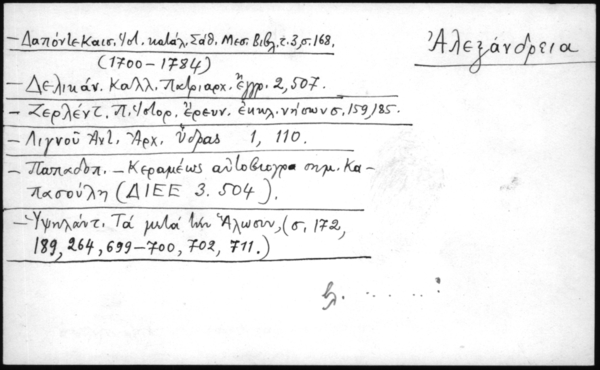 Ἀλεξάνδρεια
– Δαπόντε Καισ. Ἱστ. κατάλ. Σάθ. Μεσ. Βιβλ. τ. 3, σ. 168.
(1700–1784)
– Δελικάν. Καλλ. Πατριαρχ. ἔγγρ. 2, 507.
– Ζερλέντ. Π. Ἱστορ. ἔρευν. ἐκκλ. νήσων σ. 159, 185.
– Λιγνοῦ Ἀντ. Ἀρχ. Ὕδρας 1, 110.
– Παπαδοπ. – Κεραμέως αὐτοβιογρα σημ. Κα-
πασούλη (ΔΙΕΕ 3. 504).
– Ὑψηλάντ. Τά μετά τήν Ἅλωσιν, (σ. 172,
189, 264, 699–700, 702, 711.)